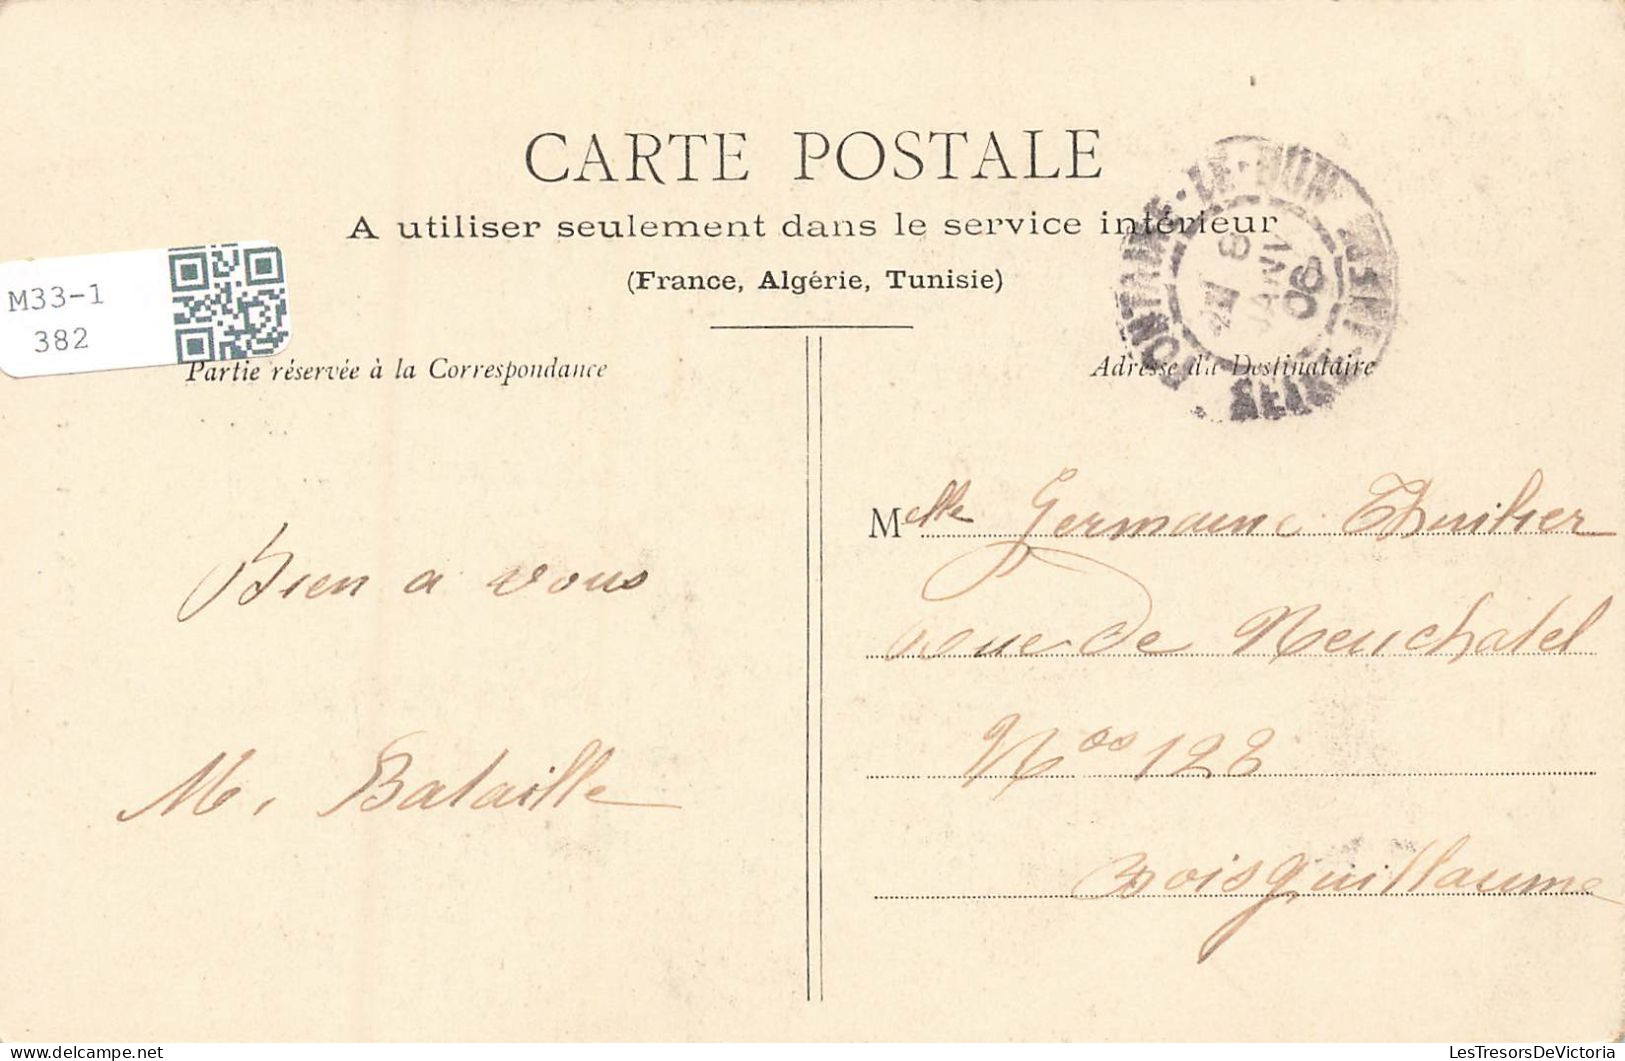 CARTE POSTALE
A utiliser seulement dans le service intérieur
(France, Algérie, Tunisie)
M33-1
382
Partie réservée à la Correspondance
Adresse du Destinataire
FONTAINE-LE-DUN
SEINE
8
JANV
06
Bien a vous
M. Bataille
Melle Germaine Thuilier
rue de Neuchatel
Nos 128
Boisguillaume
LesTresorsDeVictoria